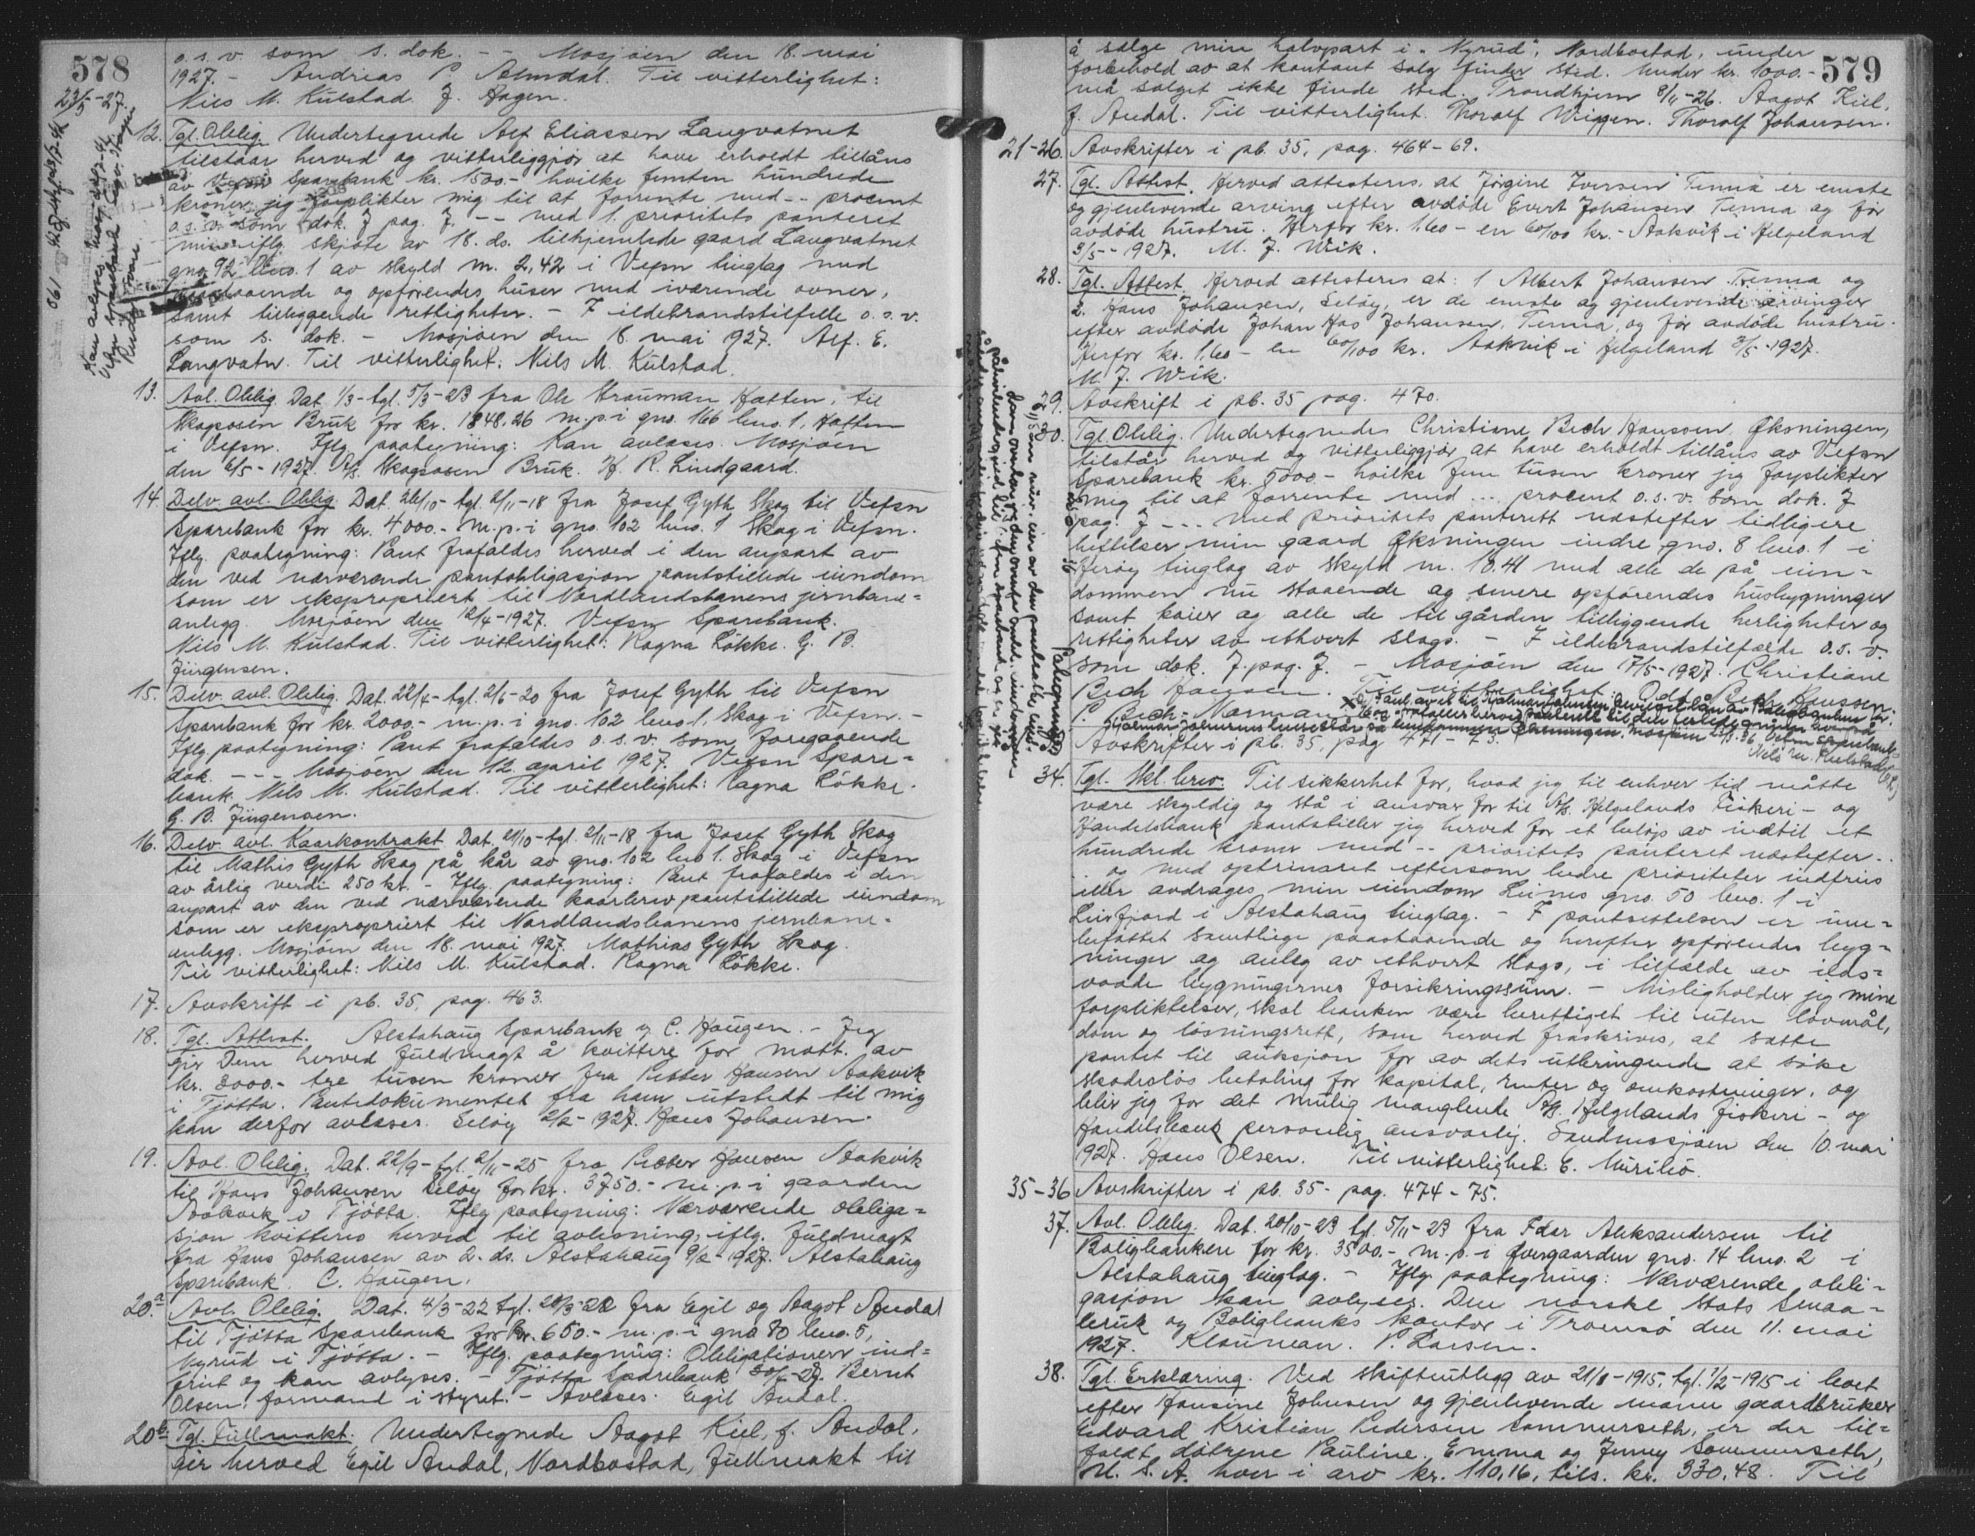 578
o.s.v. som s. dok. - - Mosjøen den 18. mai
1927. - Andreas P. Almdal. Til vitterlighet:
Nils M. Kulstad. J. Aagen.
23/5-27.
12. Tgl. Oblig. Undertegnede Alf Eliassen Langvatnet
tilstaar herved og vitterliggjør at have erholdt tillåns
av Vefsn Sparebank kr. 1500.- hvilke femten hundrede
kroner jeg forplikter mig til at forrente med - - procent
o.s.v. som dok. 7 pag. 7. - - med 1. prioritets panteret
min iflg. skjøte av 18. ds. tilhjemlede gaard Langvatnet
gno. 92 bno. 1 av skyld m. 2,42 i Vefsn tinglag med
paastaaende og opførendes huser med iværende ovner,
samt tilliggende rettigheter. - I ildebrandstilfelle o.s.v.
som s. dok. - Mosjøen den 18. mai 1927. Alf. E.
Langvatn. Til vitterlighet: Nils M. Kulstad.
13. Avl. Oblig. Dat. 1/3- tgl. 5/3-23 fra Ole Strauman Hatten, til
Skogsosen Bruk for kr. 1848,26 m.p.i gno. 166 bno. 1, Hatten
i Vefsn. Iflg. paategning: Kan avlæses. Mosjøen
den 6/5-1927. A/S Skogsosen Bruk. H. R. Lindgaard.
14. Delv. avl. Oblig. Dat. 26/10- tgl. 2/11-18 fra Josef Gyth Skog til Vefsn
Sparebank for kr. 4000.- m.p.i gno. 102 bno. 1 Skog i Vefsn.
Iflg. paategning: Pant frafaldes herved i den anpart av
den ved nærværende pantobligasjon pantstillede eiendom
som er ekspropriert til Nordlandsbanens jernbane=
anlegg. Mosjøen den 12/4-1927. Vefsn Sparebank.
Nils M. Kulstad. Til vitterlighet: Ragna Løkke. G. B.
Jürgensen.
15. Delv. avl. Oblig. Dat. 22/4- tgl. 2/6-20 fra Josef Gyth til Vefsn
Sparebank for kr. 2000.- m.p.i gno. 102 bno. 1, Skog i Vefsn. -
Iflg. paategning: Pant frafaldes o.s.v. som foregaaende
dok. - - - Mosjøen den 12. april 1927. Vefsn Spare=
bank. Nils M. Kulstad. Til vitterlighet: Ragna Løkke.
G. B. Jürgensen.
16. Delv. avl. Kaarkontrakt Dat. 21/10- tgl. 2/11-18 fra Josef Gyth Skog
til Mathis Gyth Skog på kår av gno. 102 bno 1. Skog i Vefsn
av årlig verdi 250 kr. - Iflg. paategning: Pant frafaldes i den
anpart av den ved nærværende kaarbrev pantstillede eiendom
som er ekspropriert til Nordlandsbanens jernbane=
anlegg. Mosjøen den 18. mai 1927. Mathias Gyth Skog.
Til vitterlighet: Nils M. Kulstad. Ragna Løkke.
17. Avskrift i pb. 35, pag. 463.
18. Tgl. Attest. Alstahaug Sparebank v/ C. Haugen. - Jeg
gir Dem herved fuldmagt å kvittere for mott. av
kr. 3000.- tre tusen kroner fra Petter Hansen Aakvik
i Tjøtta. Pantedokumentet fra ham utstedt til mig
kan derfor avlæses. Seløy 2/2-1927. Hans Johansen.
19. Avl. Oblig. Dat. 22/9- tgl. 2/11-25 fra Petter Hansen Aakvik
til Hans Johansen Seløy for kr. 3750.- m.p.i gaarden
Aakvik i Tjøtta. Iflg. paategning: Nærværende obliga=
sjon kvitteres herved til avlesning, iflg. fuldmagt
fra Hans Johansen av 2. ds. Alstahaug 9/2-1927. Alstahaug
Sparebank. C. Haugen.
20a Avl. Oblig. Dat. 4/3-22 tgl. 20/3-22 fra Egil og Aagot Andal
til Tjøtta Sparebank for kr. 650.- m.p.i gno 80 bno. 5,
Nyrud i Tjøtta. - Iflg. paategning: Obligationen ind=
friet og kan avlyses. - Tjøtta Sparebank Bernt
Olsen, formand i styret. - Avlæses. Egil Andal.
20b Tgl. Fullmakt. Undertegnede Aagot Kiel, f. Andal,
gir herved Egil Andal, Nordbostad, fullmakt til
579
å selge min halvpart i "Nyrud", Nordbostad, under
forbehold av at kontant salg finder sted. Under kr. 1000.-
må salget ikke finde sted. Trondhjem 8/11-26. Aagot Kiel,
f. Andal. Til vitterlighet. Thoralf Wiggen. Thoralf Johansen.
21-26. Avskrifter i pb. 35, pag. 464-69.
27. Tgl. Attest. Herved attesteres at Jørgine Iversen Tenna er eneste
og gjenlevende arving efter avdøde Evert Johansen Tenna og før
avdøde hustru. Herfor kr. 1.60 - en 60/100 kr. - Aakvik i Helgeland
3/5-1927. M. J. Wik.
28. Tgl. Attest. Herved attesteres at: 1 Albert Johansen Tenna og
2. Hans Johansen, Seløy, er de eneste og gjenlevende arvinger
efter avdøde Johan Hos Johansen, Tenna, og før avdøde hustru.
Herfor kr. 1.60 - en 60/100 kr. Aakvik i Helgeland 3/5-1927.
M. J. Wik.
29. Avskrift i pb. 35 pag. 470.
30. Tgl. Oblig. Undertegnedes Christiane Bech Hanssen, Øksningen,
tilstår herved og vitterliggjør at have erholdt tillåns av Vefsn
Sparebank kr. 5000.- hvilke fem tusen kroner jeg forplikter
mig til at forrente med ... procent o.s.v. som dok. 7
pag. 7 - - - med prioritets panterett næstefter tidligere
heftelser min gaard Øksningen indre gno. 8 bno. 1 i
Herøy tinglag av skyld m. 10.41 med alle de på eien=
dommen nu staaende og senere opførendes husbygninger
samt kaier og alle de til gården tilliggende herligheter og
rettigheter av ethvert slags. - I ildebrandstilfælde o.s.v.
som dok. 7. pag. 7. - Mosjøen den 17/5-1927. Christiane
Bech Hanssen. Til vitterlighet: Odd Bech Hanssen.
P. Bech-
Avskrifter i pb. 35, pag 471-73.
34. Tgl. Skl. brev. Til sikkerhet for, hvad jeg til enhver tid måtte
være skyldig og stå i ansvar for til A/S. Helgelands Fiskeri- og
Handelsbank pantstiller jeg herved for et beløp av indtil et
hundrede kroner med - - prioritets panteret næstefter ..
og med optrinsret eftersom bedre prioriteter indfries
eller avdrages, min eiendom Leines gno. 50 bno. 1 i
Leirfjord i Alstahaug tinglag. - I pantsettelsen er inne=
befattet samtlige paastaaende og herefter opførendes byg=
ninger og anlæg av ethvert slags, i tilfælde av ilds=
vaade bygningernes forsikringssum. - Misligholder jeg mine
forpliktelser, skal banken være berettiget til uten lovmål,
dom og løsningsrett, som herved fraskrives, at sætte
pantet til auksjon for av dets utbringende at søke
skadesløs betaling for kapital, renter og omkostninger, og
blir jeg for det mulig manglende A/S. Helgelands fiskeri- og
Handelsbank personlig ansvarlig. Sandnessjøen den 10. mai
1927. Hans Olsen. Til vitterlighet: E.
35-36 Avskrifter i pb. 35- pag. 474-75.
37. Avl. Oblig. Dat. 20/10-23 tgl. 5/11-23 fra Peder Aleksandersen til
Boligbanken for kr. 3500.- m.p.i Øvergaarden gno. 14 bno. 2 i
Alstahaug tinglag. - Iflg. paategning: Nærværende obli=
gasjon kan avlyses. Den norske Stats Smaa=
bruk og Boligbanks kontor i Tromsø den 11. mai
1927. Klauman. P. Larsen.
38. Tgl. Erklæring. Ved skifteutlegg av 21/1-1915, tgl. 1/2-1915 i boet
efter Hansine Johnsen og gjenlevende mann gaardbruker
Edvard Kristian Pedersen Sommerseth, er der til=
faldt døtrene Pauline, Emma og Jenny Sommerseth,
U.S.A. hver i arv kr. 110,16, tils. kr. 330,48. Til